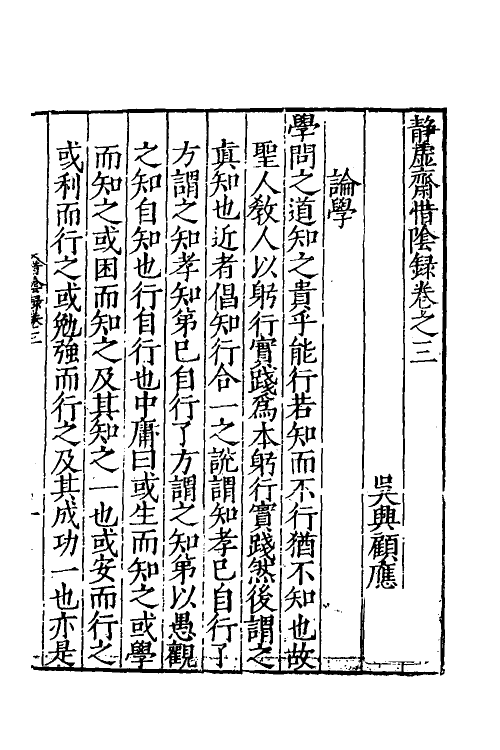 静虚齋惜陰録卷之三
吳興顧應
論學
學問之道知之貴乎能行若知而不行猶不知也故
聖人敎人以躬行實踐爲本躬行實踐然後謂之
真知也近者倡知行合一之說謂知孝已自行了
方謂之知孝知第已自行了方謂之知第以愚觀
之知自知也行自行也中庸曰或生而知之或學
而知之或困而知之及其知之一也或安而行之
或利而行之或勉強而行之及其成功一也亦是
惜陰録卷三